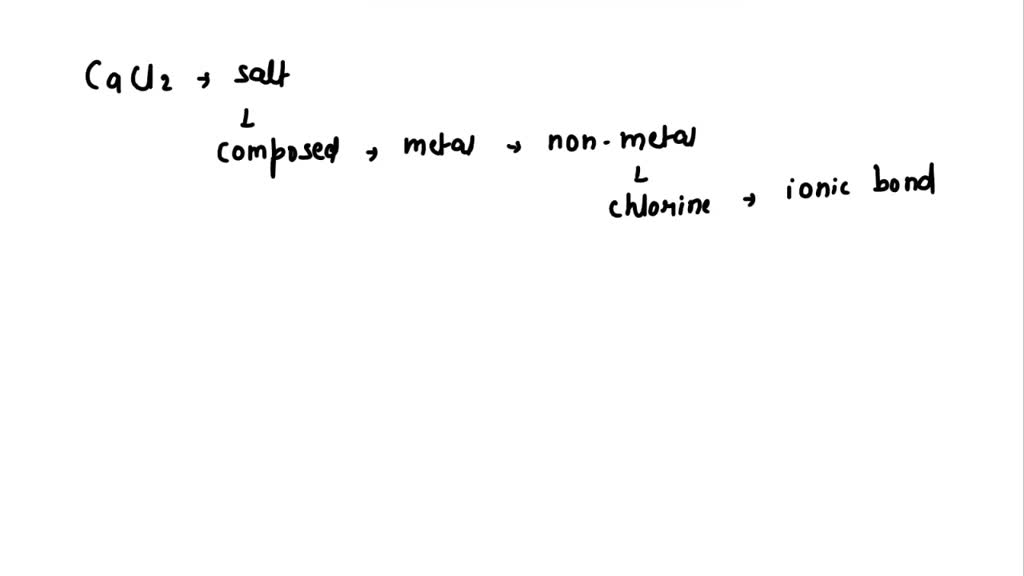 CaCl2 → salt
↳
composed → metal → non-metal
↳
chlorine → ionic bond